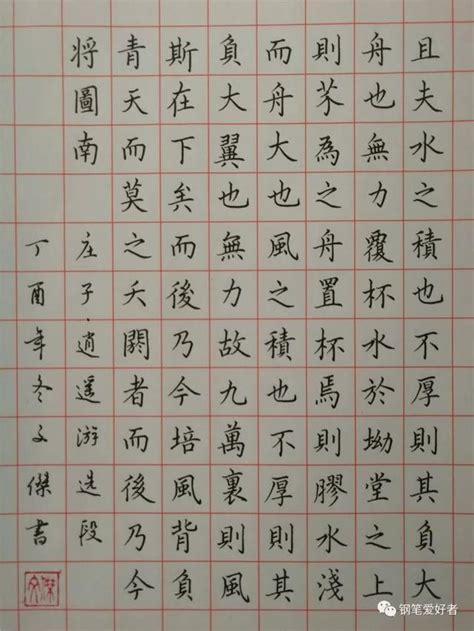 且夫水之積也不厚則其負大
舟也無力覆杯水於坳堂之上
則芥為之舟置杯焉則膠水淺
而舟大也風之積也不厚則其
負大翼也無力故九萬裏則風
斯在下矣而後乃今培風背負
青天而莫之夭閼者而後乃今
將圖南 庄子·逍遥游选段
丁酉年冬文傑書
钢笔爱好者